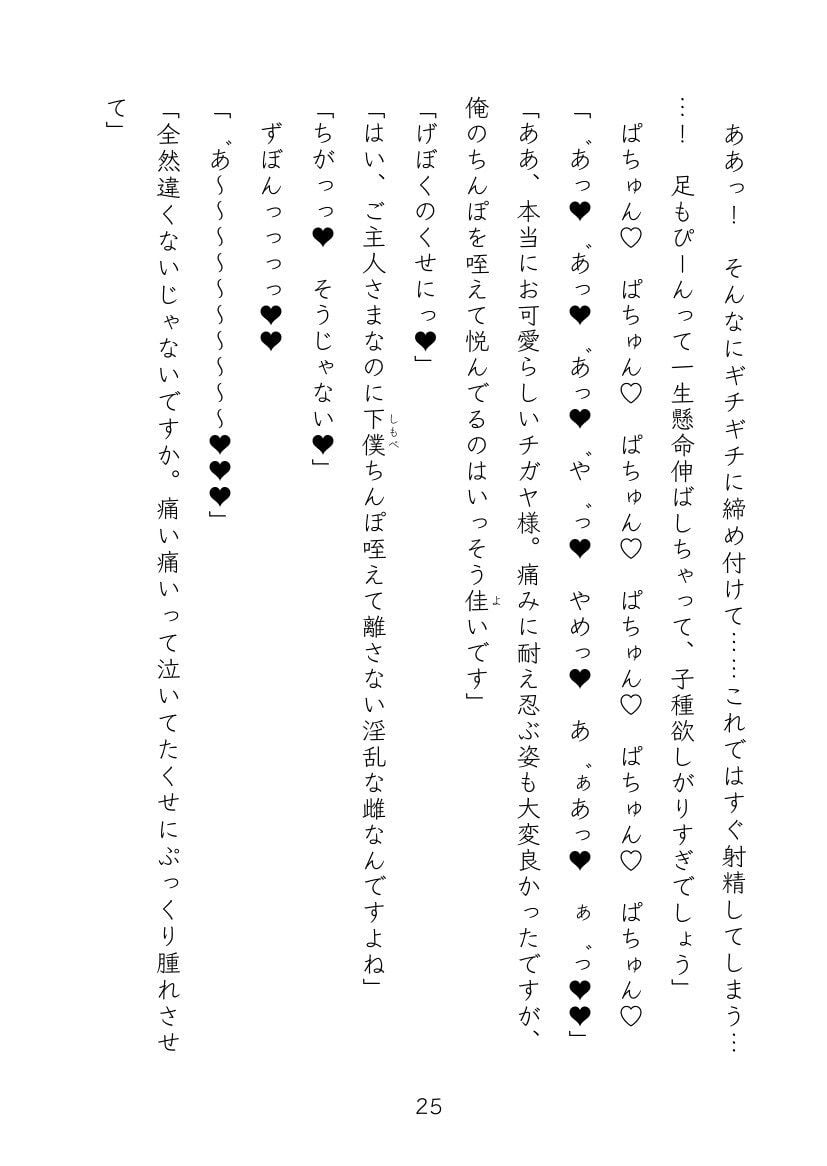 ああっ！　そんなにギチギチに締め付けて……これではすぐ射精してしまう…
…！　足もぴーんって一生懸命伸ばしちゃって、子種欲しがりすぎでしょう」
ぱちゅん♡　ぱちゅん♡　ぱちゅん♡　ぱちゅん♡　ぱちゅん♡　ぱちゅん♡
「゛あっ♥　゛あっ♥　゛あっ♥　゛や゛っ♥　やめっ♥　あ゛ぁあっ♥　ぁ゛っ♥♥」
「ああ、本当にお可愛らしいチガヤ様。痛みに耐え忍ぶ姿も大変良かったですが、
俺のちんぽを咥えて悦んでるのはいっそう佳よいです」
「げぼくのくせにっ♥」
「はい、ご主人さまなのに下僕しもべちんぽ咥えて離さない淫乱な雌なんですよね」
「ちがっっ♥　そうじゃない♥」
ずぼんっっっっ♥♥
「゛あ～～～～～～～～～～♥♥♥」
「全然違くないじゃないですか。痛い痛いって泣いてたくせにぷっくり腫れさせ
て」
25